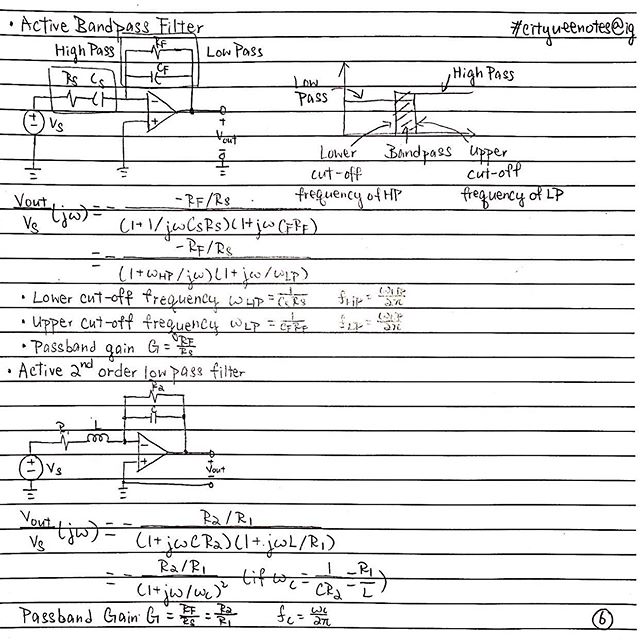 • Active Bandpass Filter
#cityweenotes@ig
High Pass
RF
Low Pass
CF
Rs Cs
Vs
Vout
Low Pass
High Pass
Lower cut-off frequency of HP
Bandpass
Upper cut-off frequency of LP
Vout/Vs (jω) = - -RF/Rs / (1+1/jωCsRs)(1+jωCFRF)
= - -RF/Rs / (1+ωHP/jω)(1+jω/ωLP)
• Lower cut-off frequency ωHP = 1/CsRs fHP = ωHP/2π
• Upper cut-off frequency ωLP = 1/CFRF fLP = ωLP/2π
• Passband gain G = RF/Rs
• Active 2nd order low pass filter
R2
C
L
Vs
Vout
Vout/Vs (jω) = - R2/R1 / (1+jωCR2)(1+jωL/R1)
= - R2/R1 / (1+jω/ωc)² (if ωc = 1/CR2 = R1/L)
Passband Gain G = RF/Rs = R2/R1 fc = ωc/2π
6